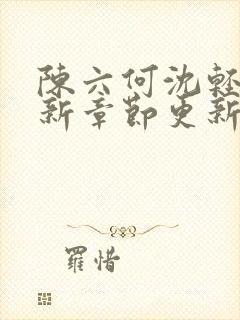 陳六何沈輕
新章節更新
羅惜